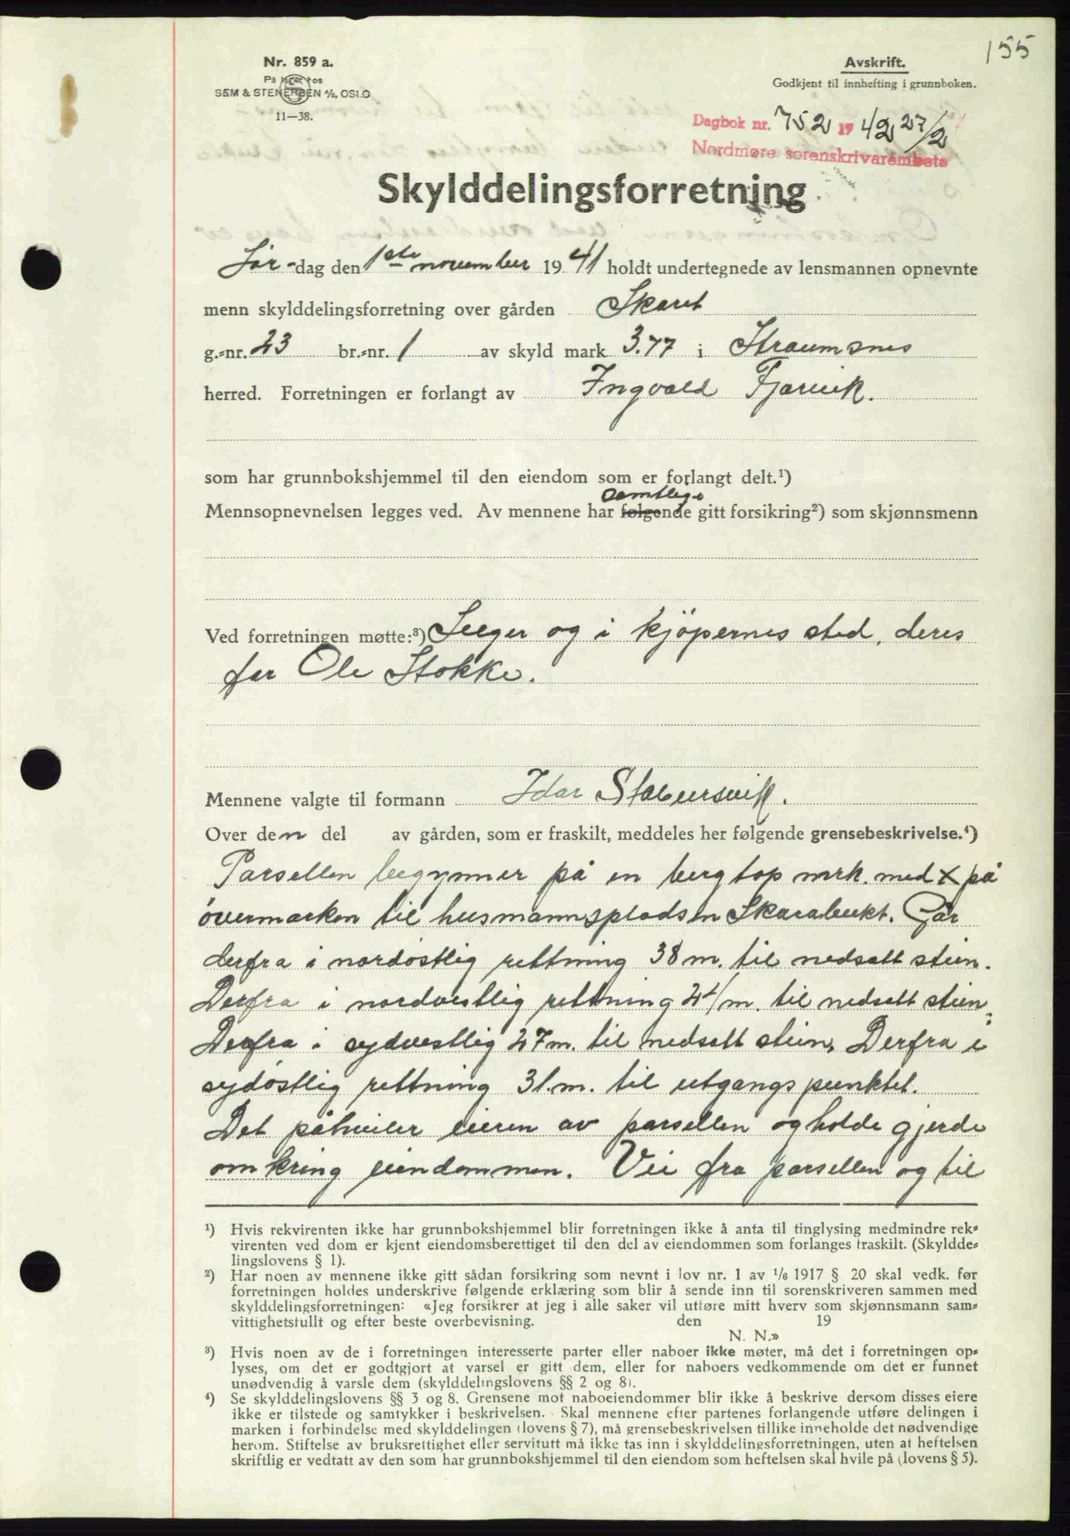 155
Nr. 859 a.
På lager hos
SEM & STENERSEN A/S, OSLO
11—38.
Avskrift.
Godkjent til innhefting i grunnboken.
Dagbok nr. 752 1942 27/2
Nordmøre sorenskrivarembete
Skylddelingsforretning
Lør-dag den 1ste november 1941 holdt undertegnede av lensmannen opnevnte
menn skylddelingsforretning over gården Skaret
g.-nr. 23 br.-nr. 1 av skyld mark 3.77 i Straumsnes
herred. Forretningen er forlangt av Ingvald Tjærvik.
som har grunnbokshjemmel til den eiendom som er forlangt delt.¹)
samtlige
Mennsopnevnelsen legges ved. Av mennene har følgende gitt forsikring²) som skjønnsmenn
Ved forretningen møtte:³) Selger og i kjöpernes sted, deres
far Ole Stokke.
Mennene valgte til formann Idar Stabursvik.
Over den del av gården, som er fraskilt, meddeles her følgende grensebeskrivelse.⁴)
Parsellen begynner på en bergtop mrk. med X på
övermarken til husmannspladsen Skarabukt. Går
derfra i nordöstlig rettning 38 m. til nedsatt stein.
Derfra i nordvestlig rettning 24 m. til nedsatt stein.
Derfra i sydvestlig 27 m. til nedsatt stein. Derfra i
sydöstlig rettning 31. m. til utgangspunktet.
Det påhviler eieren av parsellen og holde gjerde
omkring eiendommen. Vei fra parsellen og til
¹) Hvis rekvirenten ikke har grunnbokshjemmel blir forretningen ikke å anta til tinglysing medmindre rek-
virenten ved dom er kjent eiendomsberettiget til den del av eiendommen som forlanges fraskilt. (Skyldde-
lingslovens § 1).
²) Har noen av mennene ikke gitt sådan forsikring som nevnt i lov nr. 1 av 1/8 1917 § 20 skal vedk. før
forretningen holdes underskrive følgende erklæring som blir å sende inn til sorenskriveren sammen med
skylddelingsforretningen: «Jeg forsikrer at jeg i alle saker vil utføre mitt hverv som skjønnsmann sam-
vittighetsfullt og efter beste overbevisning. den 19
N. N.»
³) Hvis noen av de i forretningen interesserte parter eller naboer ikke møter, må det i forretningen op-
lyses, om det er godtgjort at varsel er gitt dem, eller for naboers vedkommende om det er funnet
unødvendig å varsle dem (skylddelingslovens §§ 2 og 8).
⁴) Se skylddelingslovens §§ 3 og 8. Grensene mot naboeiendommer blir ikke å beskrive dersom disses eiere
ikke er tilstede og samtykker i beskrivelsen. Skal mennene efter partenes forlangende utføre delingen i
marken i forbindelse med skylddelingen (lovens § 7), må grensebeskrivelsen tillike inneholde det nødvendige
herom. Stiftelse av bruksrettighet eller servitutt må ikke tas inn i skylddelingsforretningen, uten at heftelsen
skriftlig er vedtatt av den som har grunnbokshjemmel til den eiendom som heftelsen skal hvile på (lovens § 5).